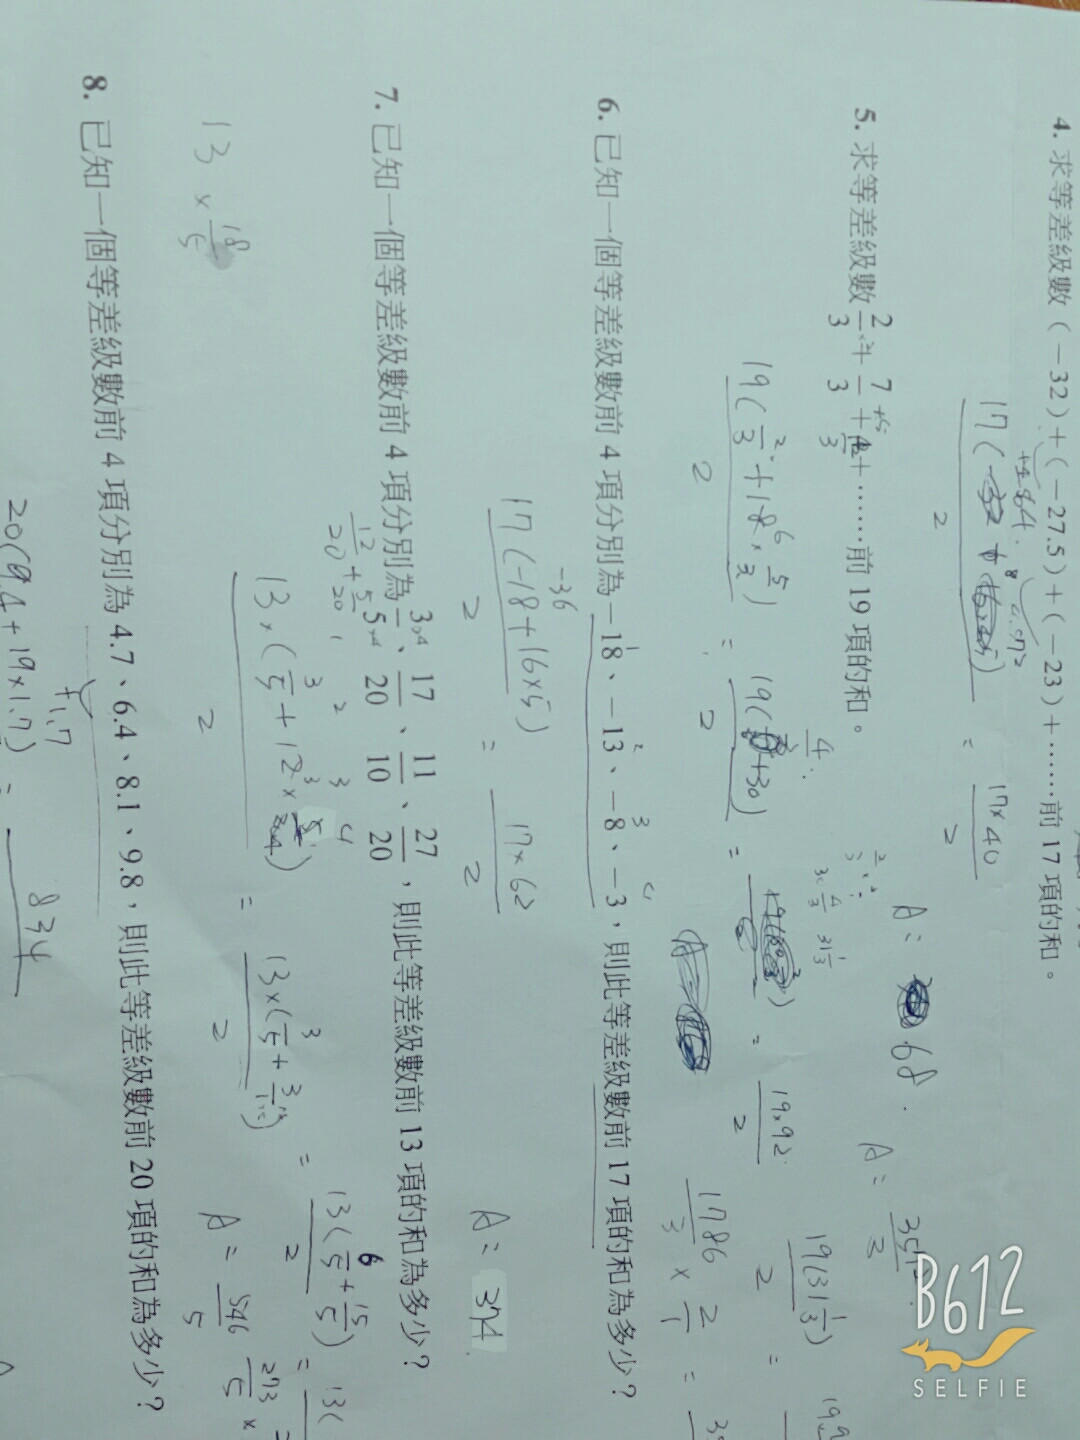 4. 求等差級數（－32）＋（－27.5）＋（－23）＋……前 17 項的和。
17(
2
=
17×40
2
A: 68
5. 求等差級數 2/3 + 7/3 + 4 + ……前 19 項的和。
19(2/3 + 18 × 5/3)
2
=
19(
+30)
2
=
=
19×92
2
19(31 1/3)
2
=
1786
3
×
2
1
=
A =
6. 已知一個等差級數前 4 項分別為－18、－13、－8、－3，則此等差級數前 17 項的和為多少？
-36
17(-18+16×5)
2
=
17×62
2
A: 374
7. 已知一個等差級數前 4 項分別為 3/5、17/20、11/10、27/20，則此等差級數前 13 項的和為多少？
12/20 + 5/20
1 2 3 4
13×(3/5 + 12×
2
=
13×(3/5 + 3
2
=
13(6/5 + 15/5)
2
=
13(
A = 546/5
273/5 ×
13 × 18/5
8. 已知一個等差級數前 4 項分別為 4.7、6.4、8.1、9.8，則此等差級數前 20 項的和為多少？
+1.7
20(9.4+19×1.7)
=
834
B612
SELFIE